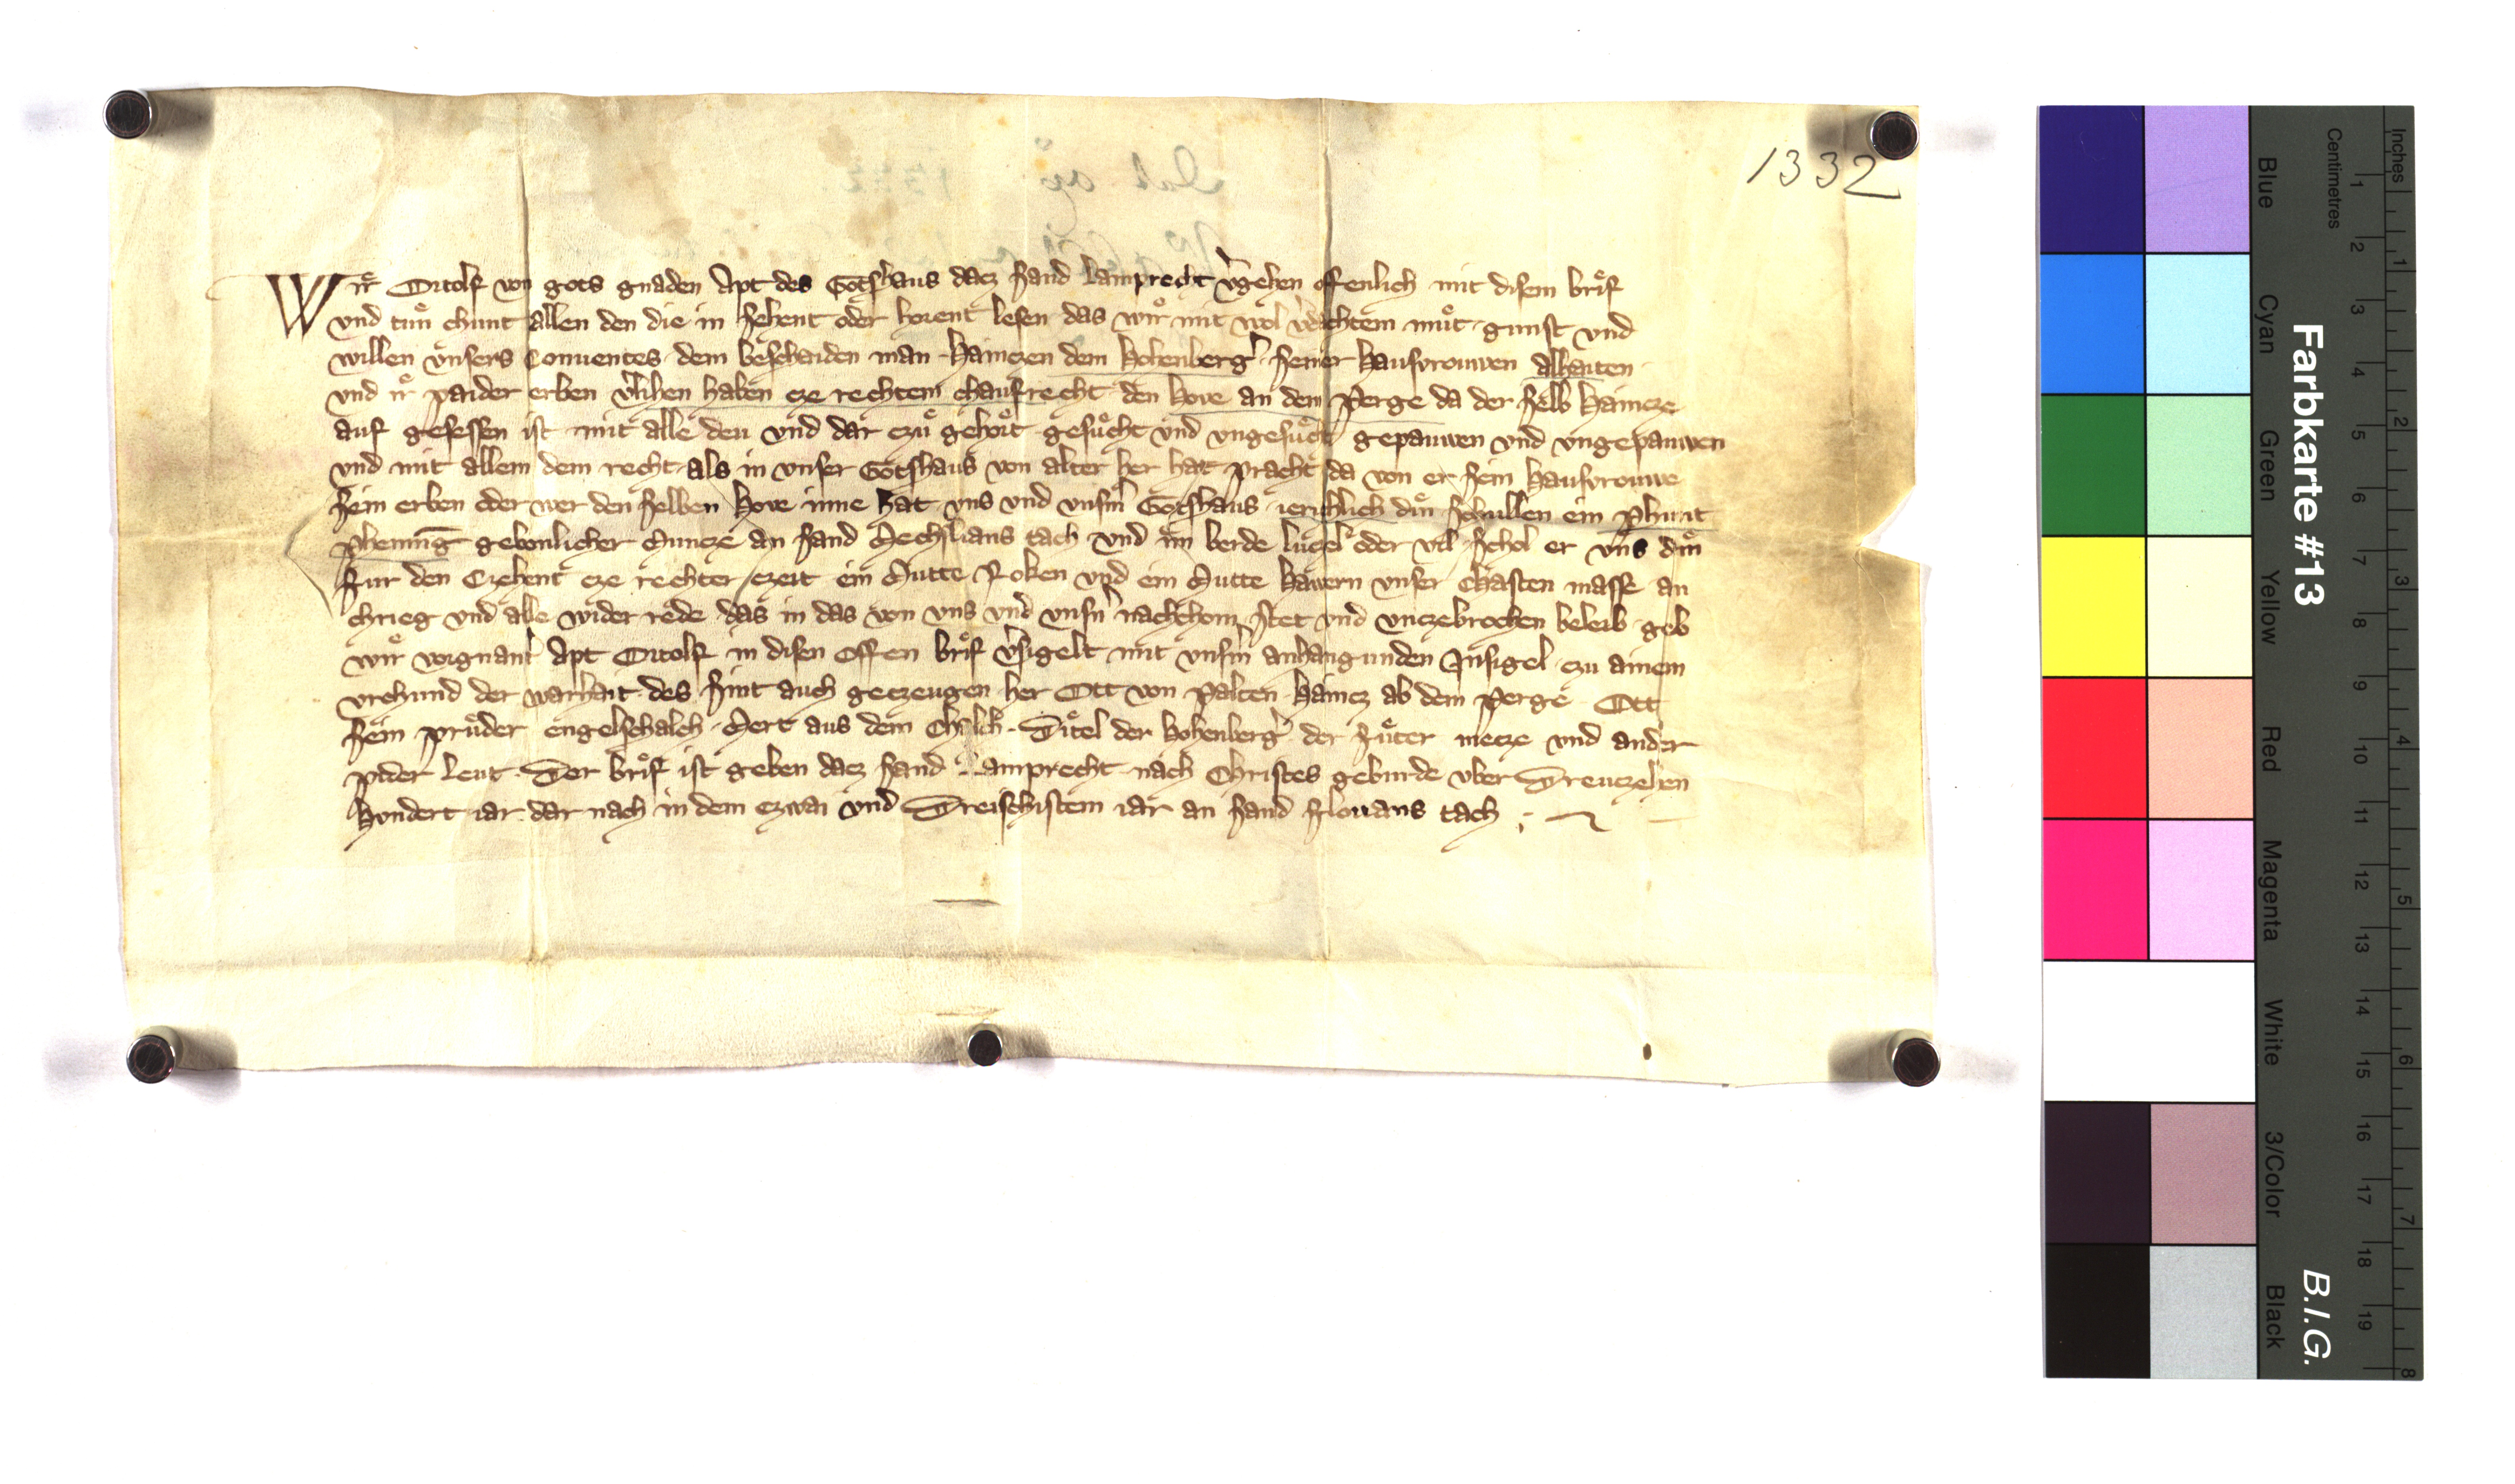 1332
Wir Ortolf von gots gnaden Apt des Gotshaus dacz sand Lamprecht v̾gehen offenlich mit disem brif
vnd tuͤn chunt allen den die in sehent oder horent lesen das wir mit wol v̾dachtem muͤt gunst vnd
willen vnsers Conuentes dem beschaiden man Hainczen dem Hohenberg̾ seiner hausvrouwen alhaiten
vnd ir paider erben v̾lihen haben cze rechtem chaufrecht den hove an dem perge da der selb haincze
auf gesessen ist mit alle deu vnd dar czuͤ gehoͤrt gesuͤcht vnd vngesuͤcht gepauwen vnd vngepauwen
vnd mit allem dem recht als in vnser Gotshaus von alter her hat pracht da von er sein hausvrouwe
sein erben oder wer den selben hove inne hat vns vnd vnsm̾ Gotshaus ierichlich din schullen ein phunt
phening gebonlicher Muncze an sand tach vnd im berde luͤczel oder vil schol er vns din
fur den Czehent cze rechter czeit ein Mutte Roken vnd ein Mutte hawern vnser Chasten masse an
chrieg vnd alle wider rede das in das von vns vnd vnsn̾ nachchom̄ stet vnd vnczebrochen beleib geb
wir vorgnant̾ Apt Ortolf in disen offen brif v̾sigelt mit vnsm̾ anhangunden Insigel czu ainem
vrchund der warhait des sint auch geczeugen her Ott von Palten haincz ab dem perge Ott
sein pruͤder engelschalch Mert aus dem Ditel der hohenberg̾ der mecze vnd ander
pider leut Der brif ist geben dacz sand Lamprecht nach Christes geburde vber Dreuczehen
hundert iar dar nach in dem czwai vnd Dreischistem iar an sand florians tach
Farbkarte #13
B.I.G.
Blue
Cyan
Green
Yellow
Red
Magenta
White
3/Color
Black
Centimetres
1 2 3 4 5 6 7 8 9 10 11 12 13 14 15 16 17 18 19
Inches
1 2 3 4 5 6 7 8